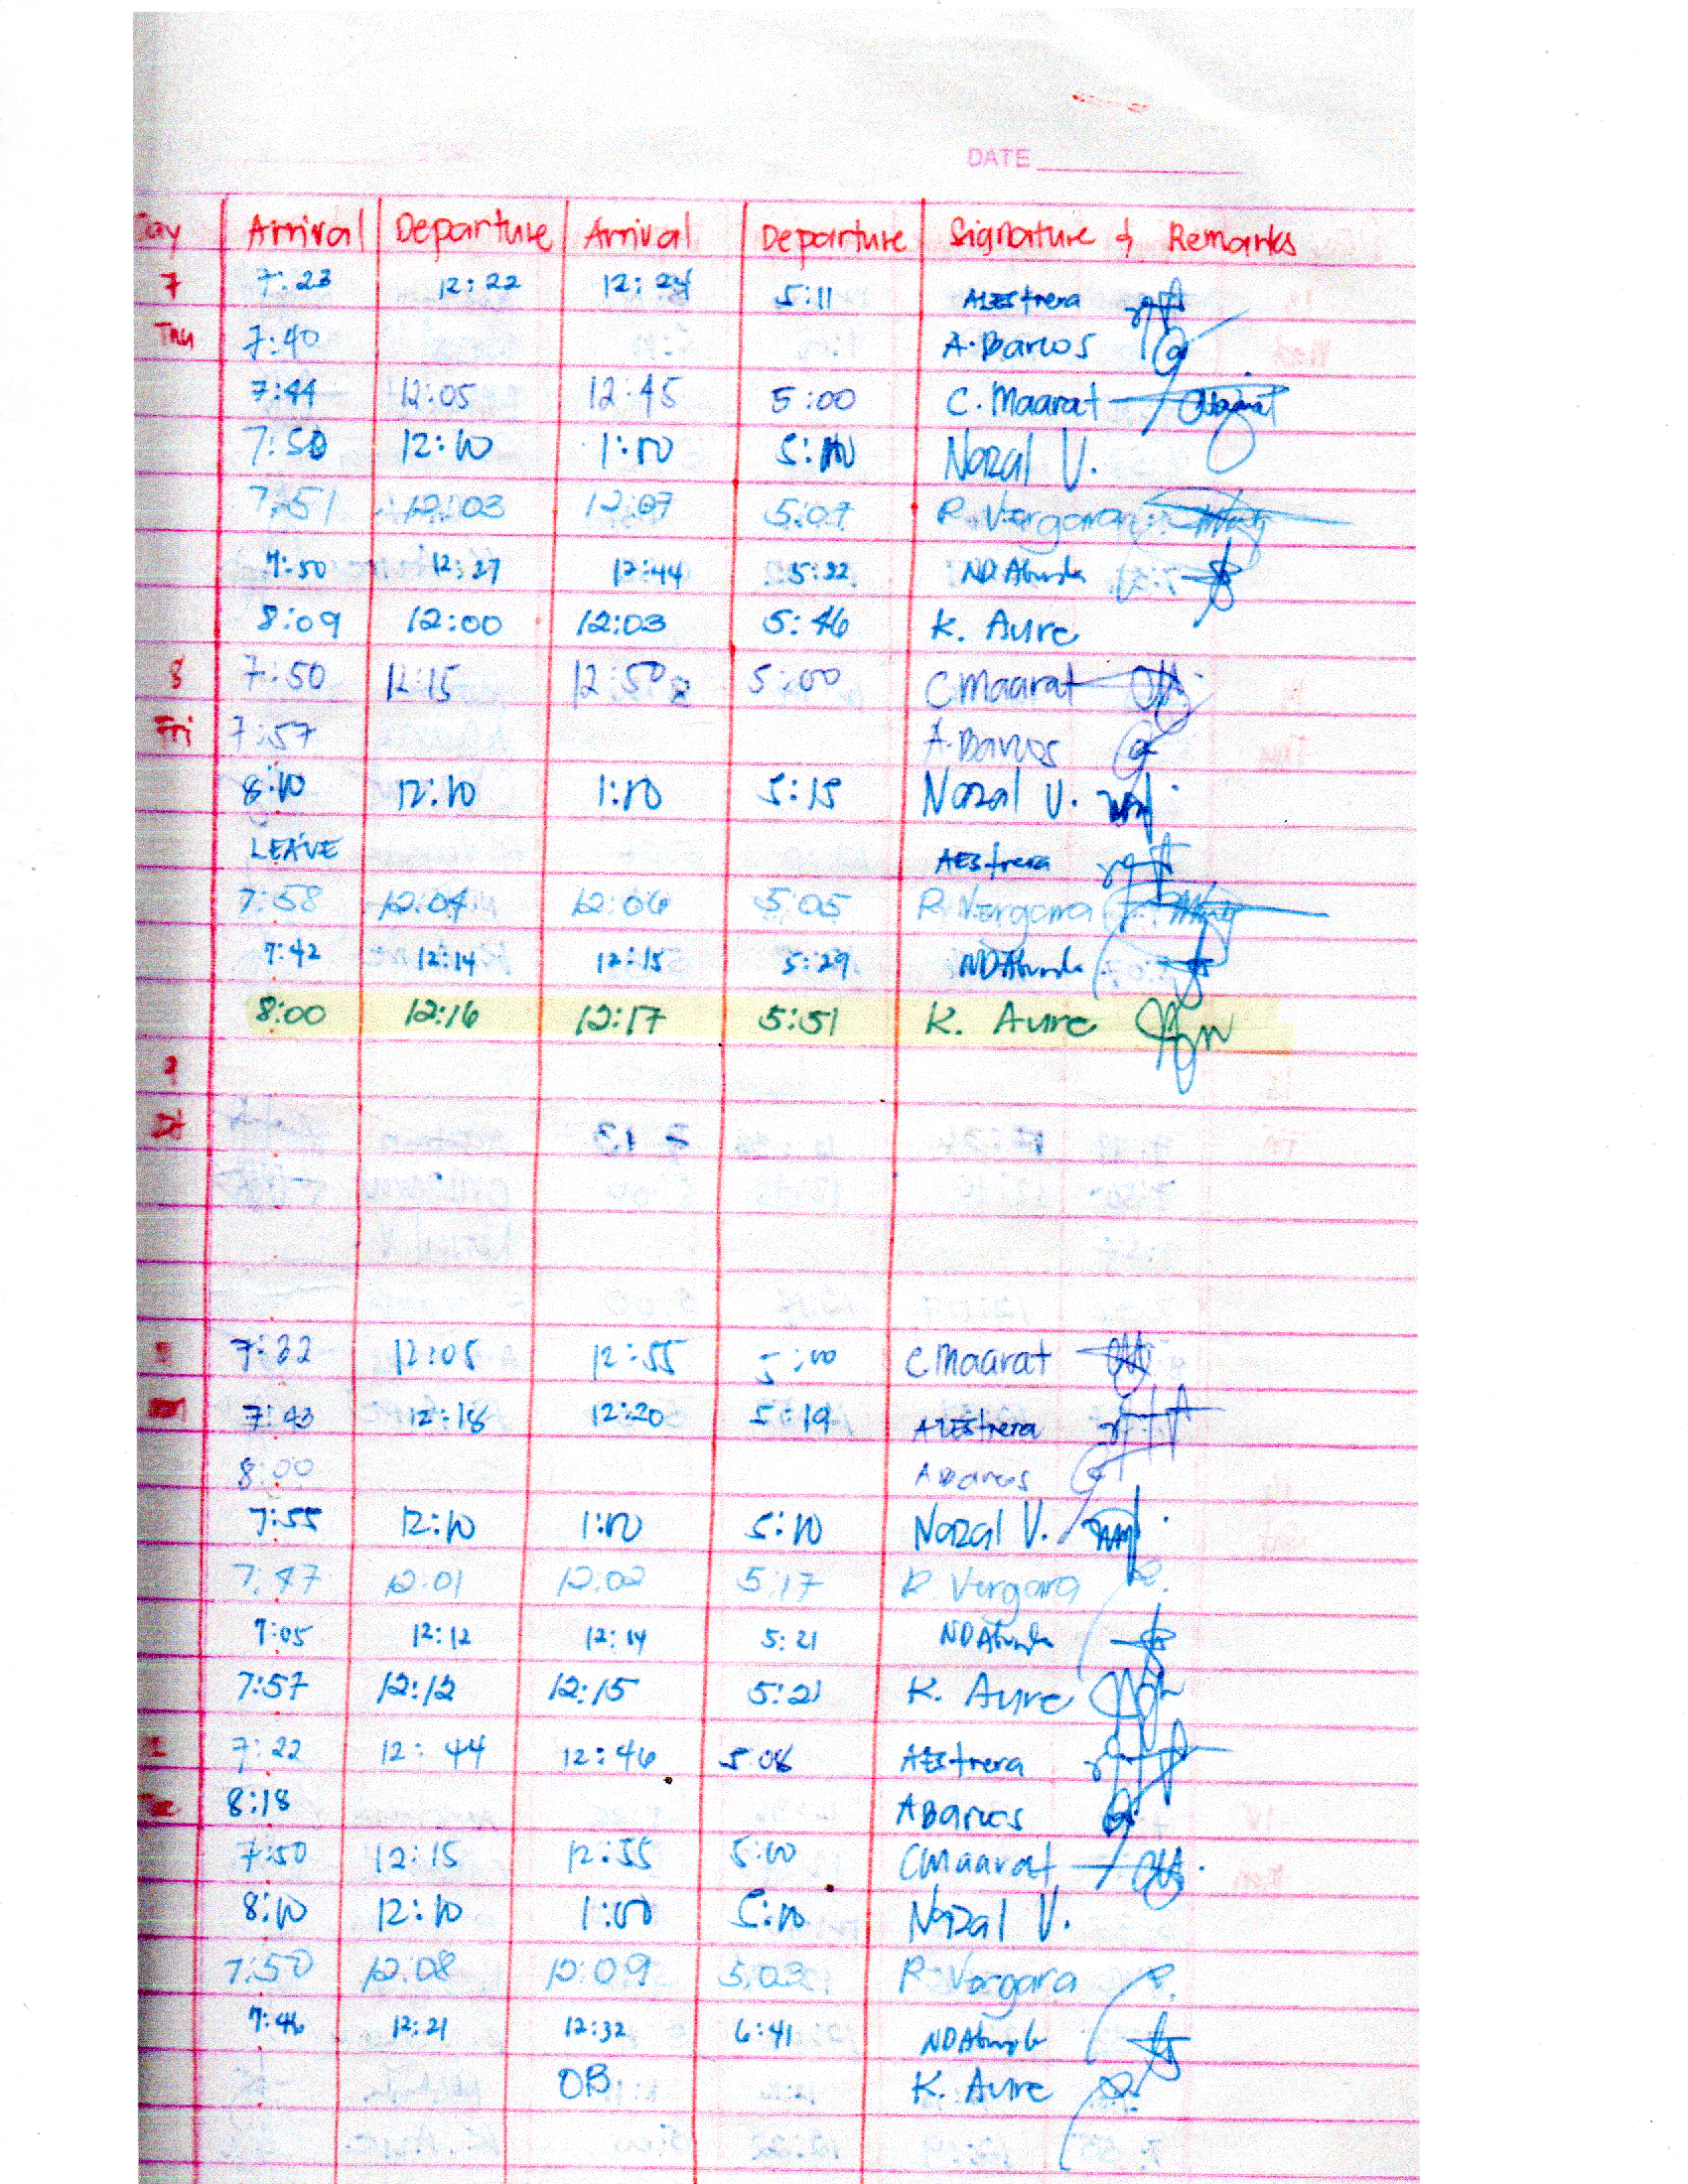 DATE
Day Arrival Departure Arrival Departure Signature & Remarks
7 7:23 12:22 12:24 5:11 AEstrera
Thu 7:40 A. Barcos
7:44 12:05 12:45 5:00 C. Maarat
7:50 12:10 1:00 5:10 Nazal V.
7:51 12:03 12:07 5:07 R. Vergara
7:50 12:27 12:44 5:22
8:09 12:00 12:03 5:46 K. Aure
8 7:50 12:15 12:50 5:00 CMaarat
Fri 7:57 A. Barcos
8:10 12:10 1:00 5:15 Nazal V.
LEAVE AEstrera
7:58 12:04 12:06 5:05 R. Vergara
7:42 12:14 12:15 5:29
8:00 12:16 12:17 5:51 K. Aure
7:22 12:05 12:55 5:00 CMaarat
7:43 12:18 12:20 5:19 AEstrera
8:00 ABarcos
7:55 12:10 1:00 5:10 Nazal V.
7:47 12:01 12:02 5:17 R. Vergara
7:05 12:12 12:14 5:21
7:57 12:12 12:15 5:21 K. Aure
7:22 12:44 12:46 5:08 AEstrera
8:18 ABarcos
7:50 12:15 12:55 5:00 CMaarat
8:10 12:10 1:00 5:10 Nazal V.
7:50 12:08 12:09 5:03 R. Vergara
7:46 12:21 12:32 6:41
OB K. Aure